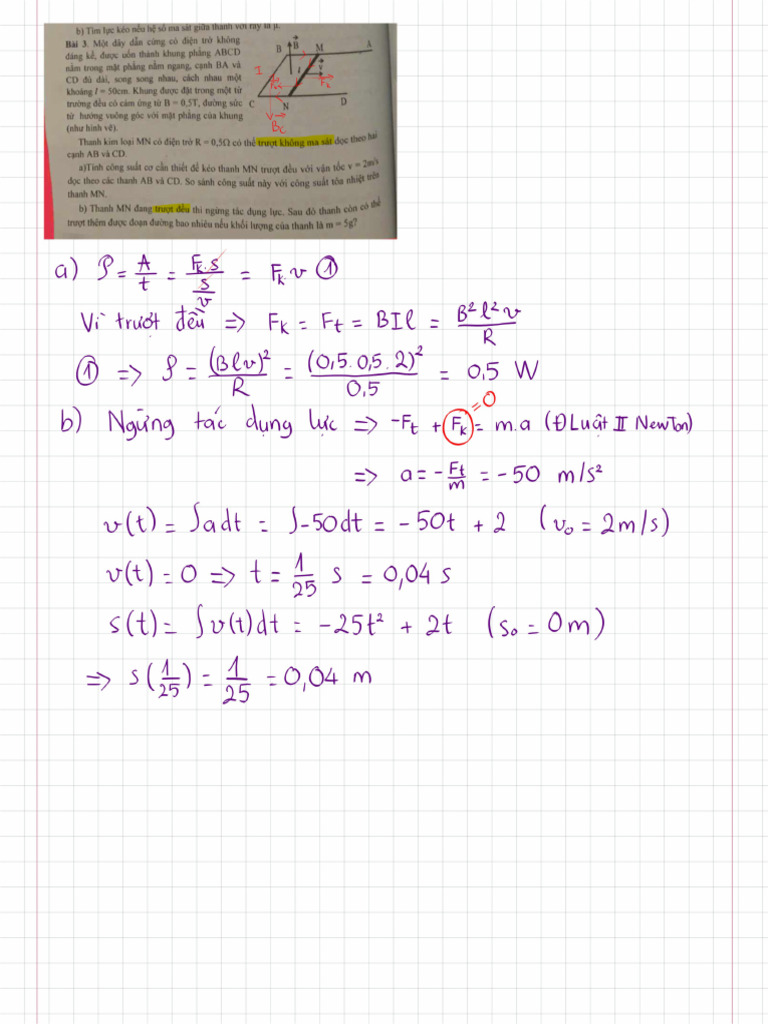 b) Tìm lực kéo nếu hệ số ma sát giữa thanh với ray là μ.
Bài 3. Một dây dẫn cứng có điện trở không
đáng kể, được uốn thành khung phẳng ABCD
nằm trong mặt phẳng nằm ngang, cạnh BA và
CD đủ dài, song song nhau, cách nhau một
khoảng l = 50cm. Khung được đặt trong một từ
trường đều có cảm ứng từ B = 0,5T, đường sức
từ hướng vuông góc với mặt phẳng của khung
(như hình vẽ).
B B M A
I l v Ft
C N D
v
Bc
Thanh kim loại MN có điện trở R = 0,5Ω có thể trượt không ma sát dọc theo hai
cạnh AB và CD.
a)Tính công suất cơ cần thiết để kéo thanh MN trượt đều với vận tốc v = 2m/s
dọc theo các thanh AB và CD. So sánh công suất này với công suất tỏa nhiệt trên
thanh MN.
b) Thanh MN đang trượt đều thì ngừng tác dụng lực. Sau đó thanh còn có thể
trượt thêm được đoạn đường bao nhiêu nếu khối lượng của thanh là m = 5g?
a) P = A/t = Fk.s/(s/v) = Fk v ①
Vì trượt đều => Fk = Ft = BIl = B²l²v/R
① => P = (Blv)²/R = (0,5.0,5.2)²/0,5 = 0,5 W
b) Ngừng tác dụng lực => -Ft + Fk = m.a (ĐLuật II NewTon)
=0
=> a = -Ft/m = -50 m/s²
v(t) = ∫adt = ∫-50dt = -50t + 2 (v₀ = 2m/s)
v(t) = 0 => t = 1/25 s = 0,04 s
s(t) = ∫v(t)dt = -25t² + 2t (s₀ = 0m)
=> s(1/25) = 1/25 = 0,04 m